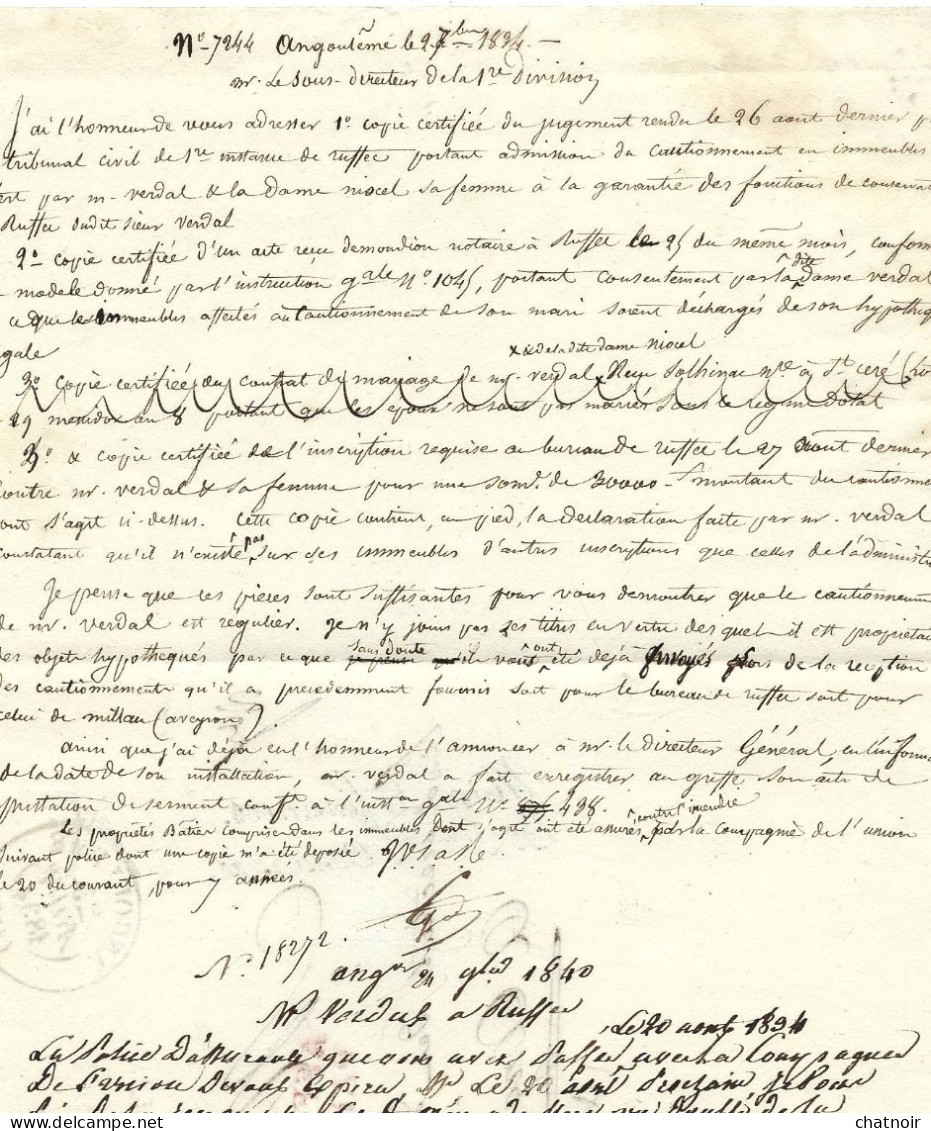 N° 7244 Angoulême le 27 7bre 1834. —
mr. Le Sous-directeur de la 1re Division
J'ai l'honneur de vous adresser 1° copie certifiée du jugement rendu le 26 aout dernier p
tribunal civil de 1re instance de ruffec portant admission du cautionnement en immeubles
ert par mr verdal & la dame niocel sa femme à la garantie des fonctions de conservat
Ruffec dudit sieur verdal
2° copie certifiée d'un acte reçu demondion notaire à Ruffec le 25 du même mois, conform
modele donné par l'instruction gale N° 1045, portant consentement par la dite Dame verdal
a que les immeubles affectés au Cautionnement de son mari soient déchargés de son hypotheq
gale
x & de la dite dame niocel
3° copie certifiée du contrat de mariage de mr. verdal x Reçu Solhinac nre à St. ceré (
29 messidor an 8 portant que les epoux ne sont pas mariés sous le régime Dotal
3° & copie certifiée de l'inscription requise au bureau de ruffec le 27 aout dernier
contre mr. verdal & sa femme pour une somme de 30000 f montant du cautionne
ont s'agit ci-dessus. Cette copie contient, au pied, la declaration faite par mr. verdal
constatant qu'il n'existe pas sur ses immeubles d'autres inscriptions que celles de l'administr
Je pense que ces pièces sont suffisantes pour vous demontrer que le cautionnem
de mr. verdal est regulier. Je n'y joins pas les titres en vertu desquels il est propriétai
des objets hypothequés par ce que sans doute ils ont été déjà Envoyés lors de la reception
des cautionnements qu'il a precedemment fournis soit pour le bureau de ruffec soit pour
celui de millau (aveyron).
ainsi que j'ai déjà eu l'honneur de l'annoncer à mr. le directeur Général, en l'inform
de la date de son installation, mr. verdal a fait enregistrer au greffe son acte de
prestation de serment conft. à l'inston gale N° 438.
Les propriétés Bâties comprises dans les immeubles dont s'agit ont été assurés contre l'incendie par la compagnie de l'union
Suivant police dont une copie m'a été deposée
le 20 du courant, pour 7 années.
N° 18272.
angme 24 9bre 1840
Mr Verdal a Ruffec
Le 20 aout 1834
La Police D'assurance que vous avez Passée avec la Compagnie
De l'union Devant Expirer Mr Le 20 août Prochain Je Vous